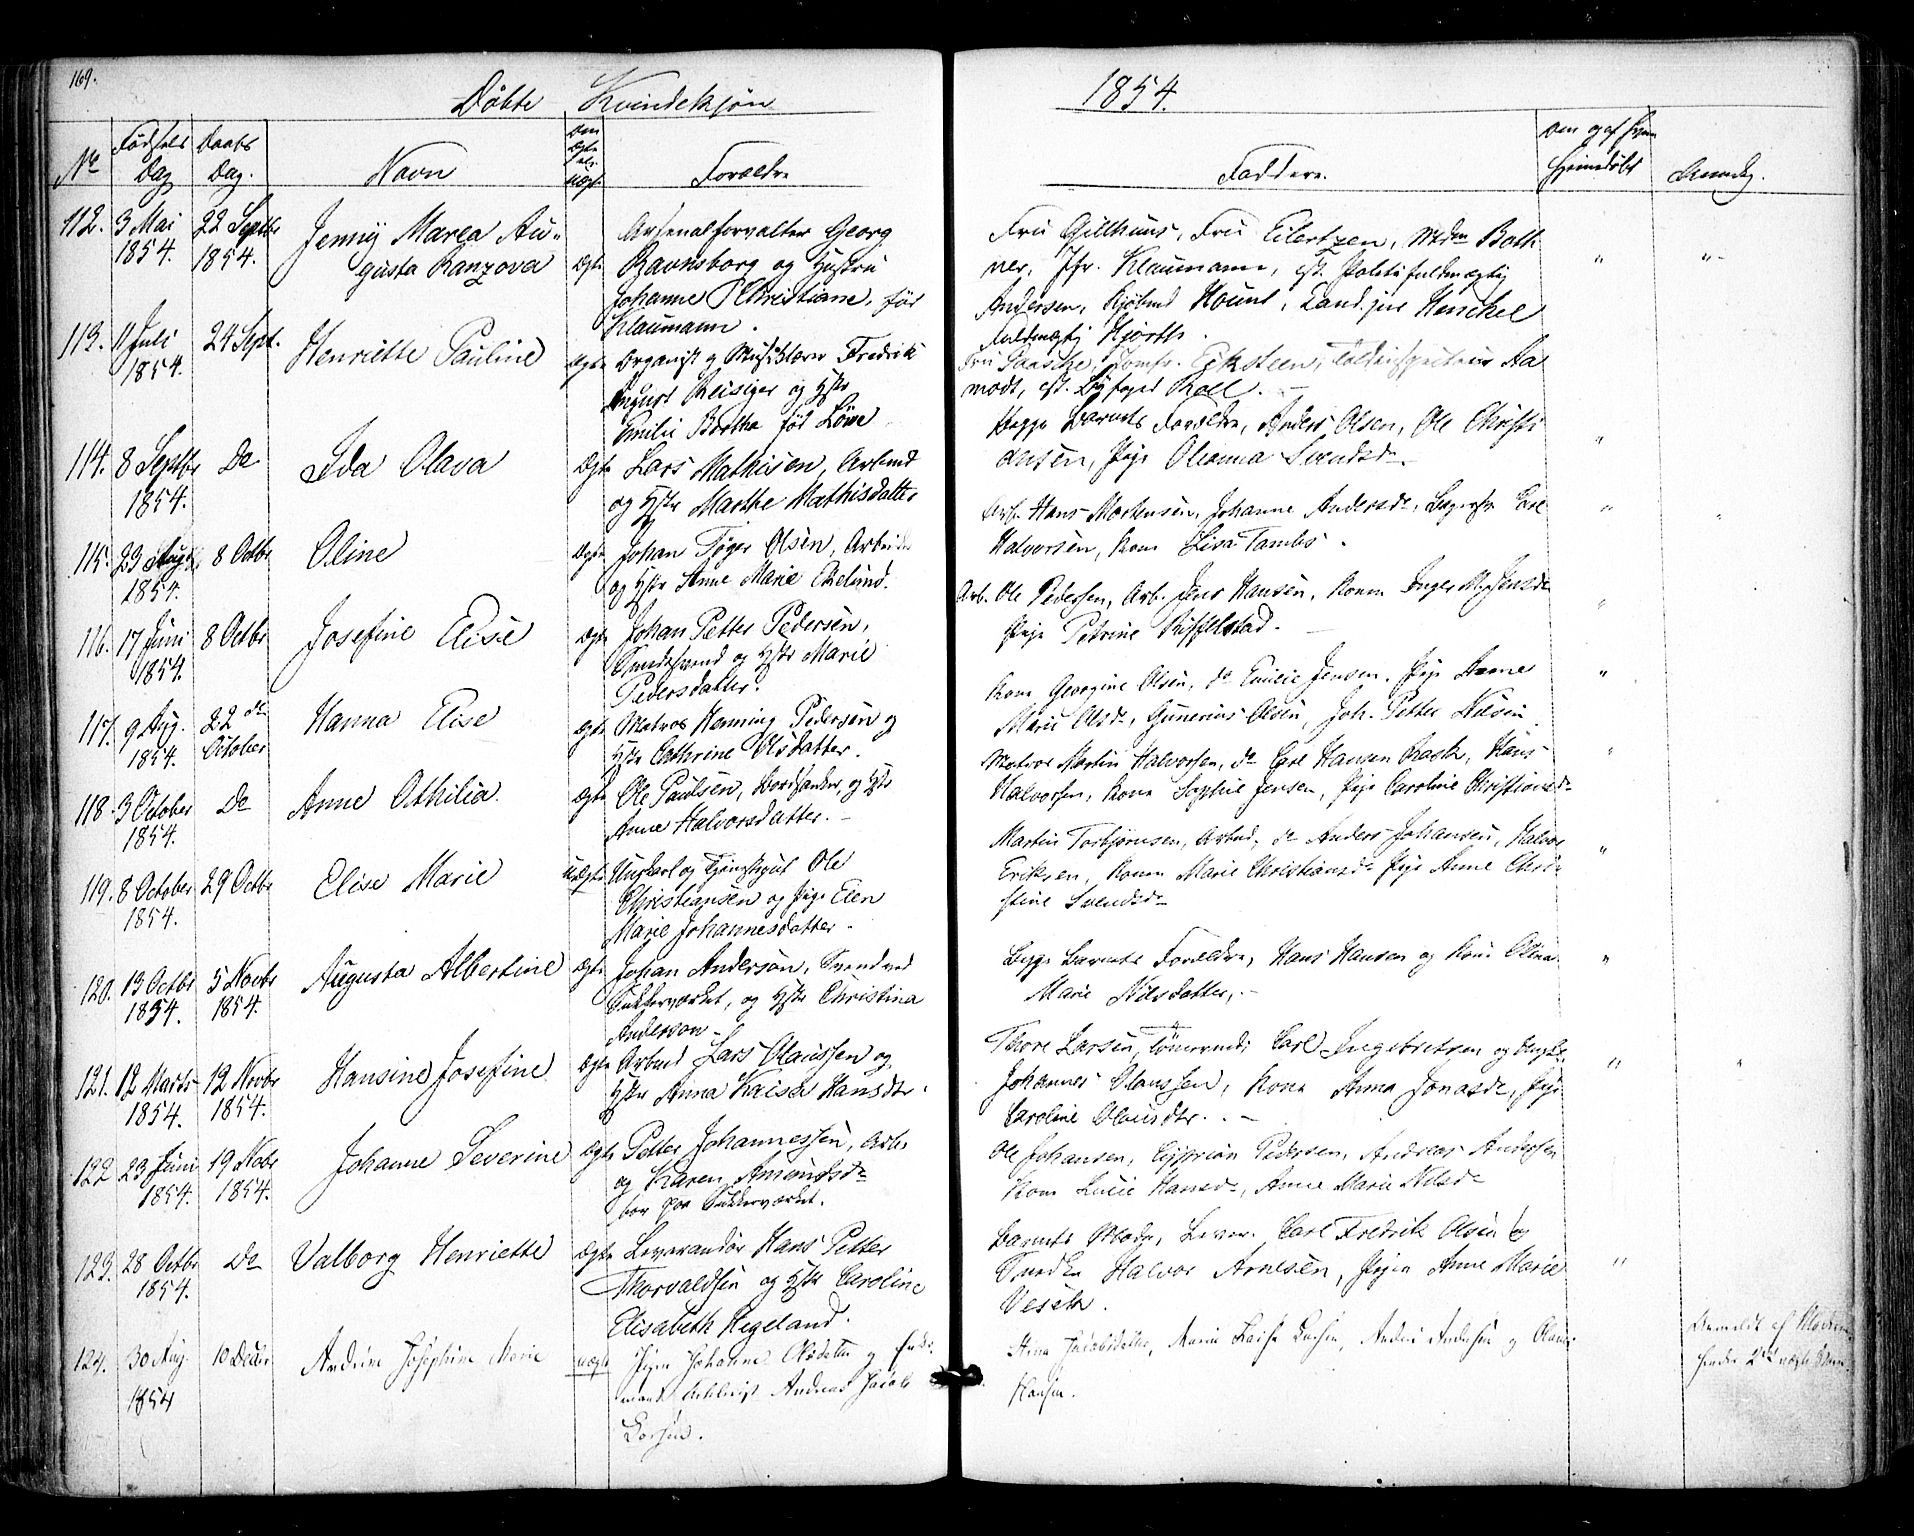 169.
Döbte Kvindekjön
1854.
No
Födsels Dag
Daabs Dag.
Navn
Om Ægte el. Uægte
Forældre
Faddere.
Om og af hvem hjemmedöbt
Anmkg.
112. 3 Mai 1854. 22 Septbr 1854.
Jenny Marea Au-
gusta Ranzova
ægte
Arsenalforvalter Georg
Ravnsborg og Hustru
Johanne Christiane, föd
Klaumann.
Fru Gillhuus, Fru Eilertzen, Mdm Both
ner, Jfr. Klaumann, Politifuldmægtig
Andersen, Kjöbmd Hount, Cand. jur Henchel
Fuldmægtig Hjorth.
113. 11 Juli 1854. 24 Sept.
Henriette Pauline
ægte
Organist og Musiklærer Fredrik
August Reisiger og Hstr
Emilie Bertha föd Löwe
Fru Paaske, Jomfr. Ecksteen, Toldinspecteur Aa
modt, Byfoged Roll.
114. 8 Septbr 1854. Do
Ida Olava
ægte
Lars Mathisen, Arbmd
og Hstr Marthe Mathisdatter
Begge Barnets Forældre, Anders Olsen, Ole Christi
ansen, Pige Oleanna Svendsd.
115. 23 Aug. 1854. 8 Octbr
Oline
ægte
Johan Töger Olsen, Arbeider
og Hstr Anne Marie Ekelund.
Arb. Hans Mortensen, Johanne Andersd., Carl
Halvorsen, Kone Lisa Tambs.
116. 17 Juni 1854. 8 Octbr
Josefine Elise
ægte
Johan Petter Pedersen,
Smedesvend og Hstr Marie
Pedersdatter.
Arb. Ole Pedersen, Arb. Jens Hansen, Kone Inger M. Jensd
Pige Petrine Riffelstad.
117. 9 Aug. 1854. 22de October
Hanna Elise
ægte
Matros Henning Pedersen og
Hstr Cathrine Olsdatter.
Kone Georgine Olsen, do Emilie Jensen. Pige Anne
Marie Olsd., Gunerius Olsen, Joh. Petter Nilsen
118. 3 October 1854. Do
Anne Othilia.
ægte
Ole Paulsen, og Hstr
Anne Halvorsdatter.
Matros Martin Halvorsen, do Carl Hansen Rask, Hans
Halvorsen, Kone Sophie Jensen, Pige Caroline Christiansd.
119. 8 October 1854. 29 Octbr
Elise Marie
uægte
Ungkarl og Tjenestegut Ole
Christiansen og Pige Elen
Marie Johannesdatter.
Martin Torbjörnsen, Arbmd, do Anders Johansen, Halvor
Eriksen, Konen Marie Christiansd. Pige Anne Chri-
stine Svendsd.
120. 13 Octbr 1854. 5 Novbr 1854.
Augusta Albertine
ægte
Johan Anderson, Svend ved
Sukkerværket, og Hstr Christina
Anderson
Begge Barnets Forældre, Hans Hansen og Kone Olina
Marie Nilsdatter,
121. 12 Marts 1854. 12 Novbr 1854.
Hansine Josefine
ægte
Arbmd Lars Olaussen og
Hstr Anna Kaisa Hansdtr.
Thore Larsen, Carl Ingebretsen og
Johannes Olaussen, Kone Anna Jonasd., Pige
Caroline Olausdtr.
122. 23 Juni 1854. 19 Nobr 1854.
Johanne Severine
ægte
Petter Johannessen, Arb.
og Karen Amundsd.
bor paa Sukkerværket.
Ole Johansen, Cyprian Pedersen, Andreas Andersen
Kone Lucie Hansd., Anne Marie Nilsd.
123. 28 Octbr 1854. Do
Valborg Henriette
ægte
Leverandör Hans Petter
Thorvaldsen og Hstr Caroline
Elisabeth Hegeland.
Barnets Moder, Lever. Carl Fredrik Olsen og
Halvor Arnesen, Pigen Anne Marie
Veseth.
124. 30 Aug. 1854 10 Decbr
Andrine Josephine Marie
uægte
Pigen Johanne Olsdatter og Enke-
mand Andreas Jacob
Larsen.
Stina Jacobsdatter, Maria Larsen, Anders Andersen og Olaus
Hansen.
Anmeldt af Moderen.
hendes 2det uægte Barn.